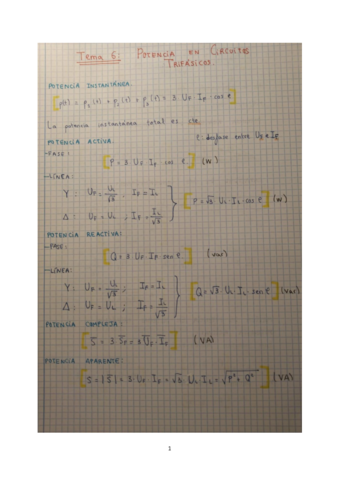 Tema 6: POTENCIA EN CIRCUITOS
TRIFÁSICOS.
POTENCIA INSTANTÁNEA:
[p(t) = p₁(t) + p₂(t) + p₃(t) = 3 U_F I_F cos φ]
La potencia instantánea total es cte.
φ: desfase entre U_F e I_F
POTENCIA ACTIVA:
-FASE:
[P = 3 U_F I_F cos φ] (W)
-LÍNEA:
Y: U_F = U_L/√3 ; I_F = I_L
Δ: U_F = U_L ; I_F = I_L/√3
} [P = √3 U_L · I_L · cos φ] (W)
POTENCIA REACTIVA:
-FASE:
[Q = 3 U_F I_F sen φ] (var)
-LÍNEA:
Y: U_F = U_L/√3 ; I_F = I_L
Δ: U_F = U_L ; I_F = I_L/√3
} [Q = √3 · U_L · I_L · sen φ] (var)
POTENCIA COMPLEJA:
[S̅ = 3 · S̅_F = 3 U̅_F · I̅_F] (VA)
POTENCIA APARENTE:
[S = |S̅| = 3 · U_F · I_F = √3 U_L I_L = √P² + Q²] (VA)
1